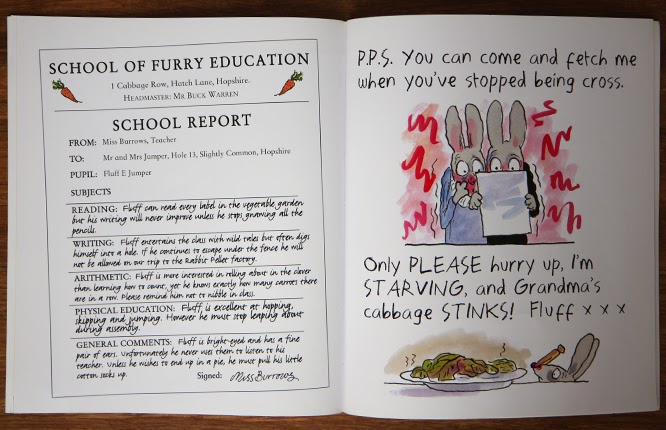 SCHOOL OF FURRY EDUCATION
1 Cabbage Row, Hutch Lane, Hopshire.
HEADMASTER: MR BUCK WARREN
SCHOOL REPORT
FROM: Miss Burrows, Teacher
TO: Mr and Mrs Jumper, Hole 13, Slightly Common, Hopshire
PUPIL: Fluff E Jumper
SUBJECTS
READING: Fluff can read every label in the vegetable garden
but his writing will never improve unless he stops gnawing all the
pencils.
WRITING: Fluff entertains the class with wild tales but often digs
himself into a hole. If he continues to escape under the fence he will
not be allowed on our trip to the Rabbit Pellet factory.
ARITHMETIC: Fluff is more interested in rolling about in the clover
than learning how to count, yet he knows exactly how many carrots there
are in a row. Please remind him not to nibble in class.
PHYSICAL EDUCATION: Fluff is excellent at hopping,
skipping and jumping. However he must stop leaping about
during assembly.
GENERAL COMMENTS: Fluff is bright-eyed and has a fine
pair of ears. Unfortunately he never uses them to listen to his
teacher. Unless he wishes to end up in a pie, he must pull his little
cotton socks up.
Signed: Miss Burrows
P.P.S. You can come and fetch me
when you've stopped being cross.
Only PLEASE hurry up, I'm
STARVING, and Grandma's
cabbage STINKS! Fluff x x x